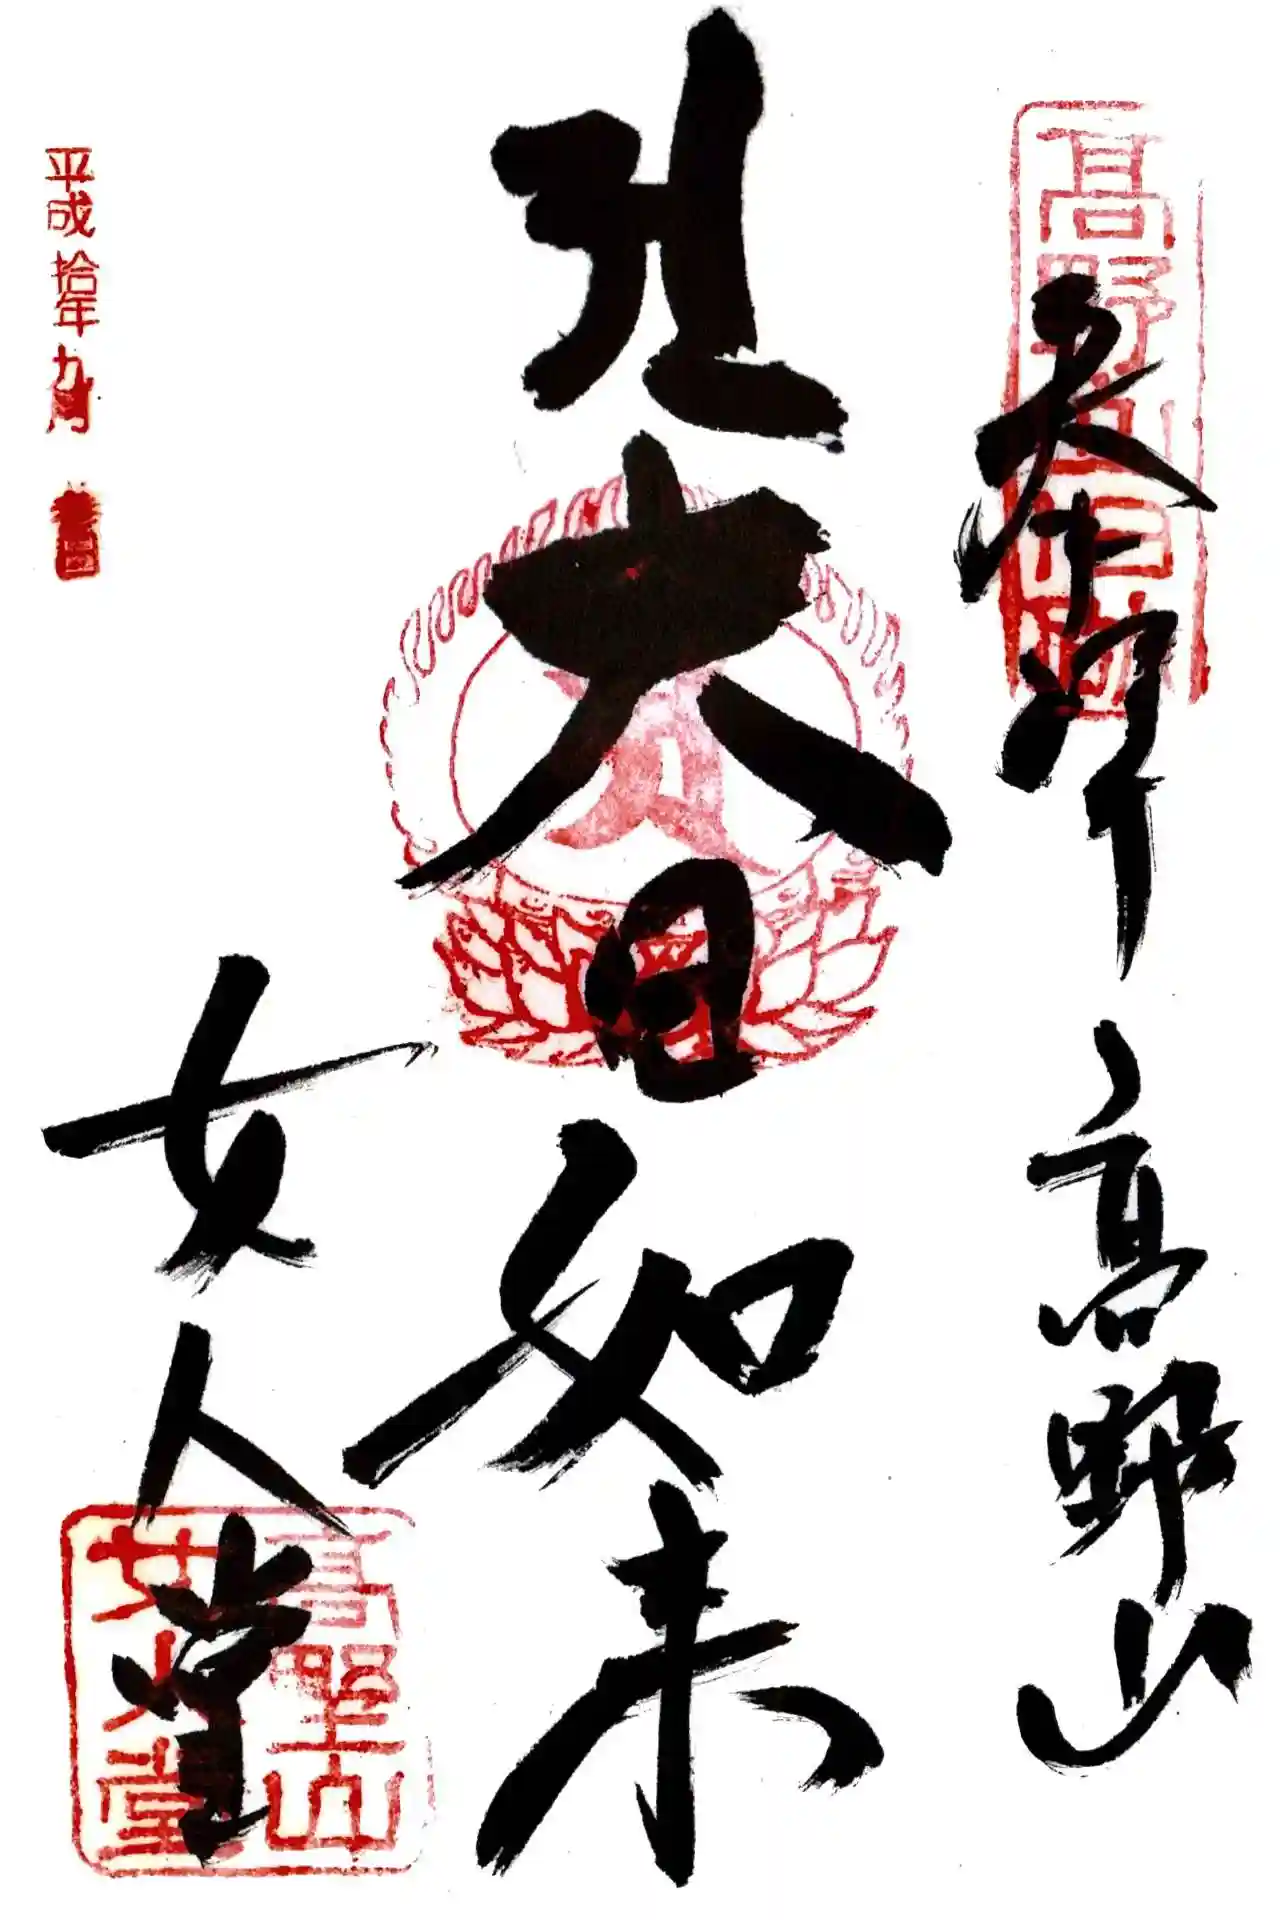 奉拝 高野山
高野山
大日如来
女人堂
高野山
女人堂
平成拾年九月 日